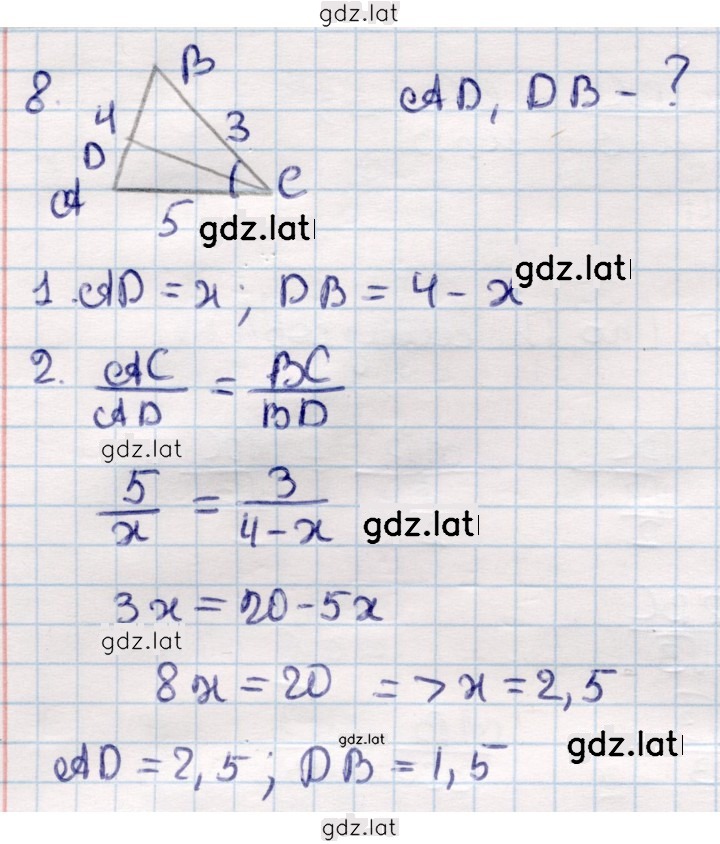 gdz.lat
8.
B
AD, DB - ?
4
3
D
A
C
5
gdz.lat
1. AD = x; DB = 4 - x
gdz.lat
2. AC/AD = BC/BD
gdz.lat
5/x = 3/(4-x)
gdz.lat
3x = 20 - 5x
gdz.lat
8x = 20 => x = 2,5
gdz.lat
gdz.lat
AD = 2,5; DB = 1,5
gdz.lat